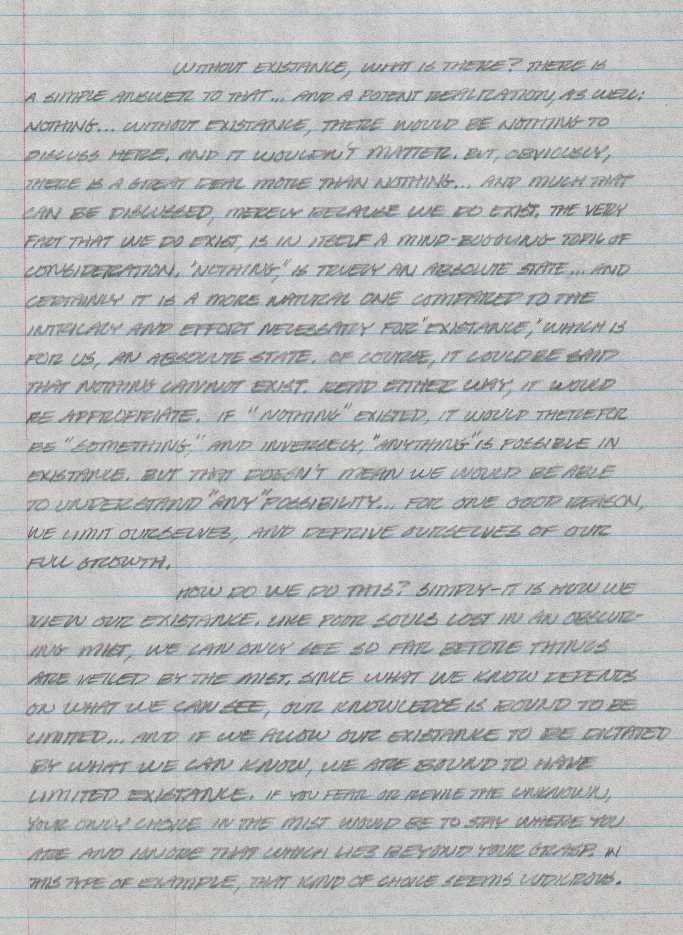 WITHOUT EXISTANCE, WHAT IS THERE? THERE IS
A SIMPLE ANSWER TO THAT... AND A POTENT REALIZATION, AS WELL:
NOTHING... WITHOUT EXISTANCE, THERE WOULD BE NOTHING TO
DISCUSS HERE. AND IT WOULDN'T MATTER. BUT, OBVIOUSLY,
THERE IS A GREAT DEAL MORE THAN NOTHING... AND MUCH THAT
CAN BE DISCUSSED, MERELY BECAUSE WE DO EXIST. THE VERY
FACT THAT WE DO EXIST, IS IN ITSELF A MIND-BOGGLING TOPIC OF
CONSIDERATION. "NOTHING," IS TRUELY AN ABSOLUTE STATE... AND
CERTAINLY IT IS A MORE NATURAL ONE COMPARED TO THE
INTRICACY AND EFFORT NECESSARY FOR "EXISTANCE," WHICH IS
FOR US, AN ABSOLUTE STATE. OF COURSE, IT COULD BE SAID
THAT NOTHING CANNOT EXIST. READ EITHER WAY, IT WOULD
BE APPROPRIATE. IF "NOTHING" EXISTED, IT WOULD THEREFOR
BE "SOMETHING," AND INVERSELY, "ANYTHING" IS POSSIBLE IN
EXISTANCE. BUT THAT DOESN'T MEAN WE WOULD BE ABLE
TO UNDERSTAND "ANY" POSSIBILITY... FOR ONE GOOD REASON,
WE LIMIT OURSELVES, AND DEPRIVE OURSELVES OF OUR
FULL GROWTH.
HOW DO WE DO THIS? SIMPLY-IT IS HOW WE
VIEW OUR EXISTANCE. LIKE POOR SOULS LOST IN AN OBSCUR-
ING MIST, WE CAN ONLY SEE SO FAR BEFORE THINGS
ARE VEILED BY THE MIST. SINCE WHAT WE KNOW DEPENDS
ON WHAT WE CAN SEE, OUR KNOWLEDGE IS BOUND TO BE
LIMITED... AND IF WE ALLOW OUR EXISTANCE TO BE DICTATED
BY WHAT WE CAN KNOW, WE ARE BOUND TO HAVE
LIMITED EXISTANCE. IF YOU FEAR OR REVILE THE UNKNOWN,
YOUR ONLY CHOICE IN THE MIST WOULD BE TO STAY WHERE YOU
ARE AND IGNORE THAT WHICH LIES BEYOND YOUR GRASP. IN
THIS TYPE OF EXAMPLE, THAT KIND OF CHOICE SEEMS LUDICROUS.